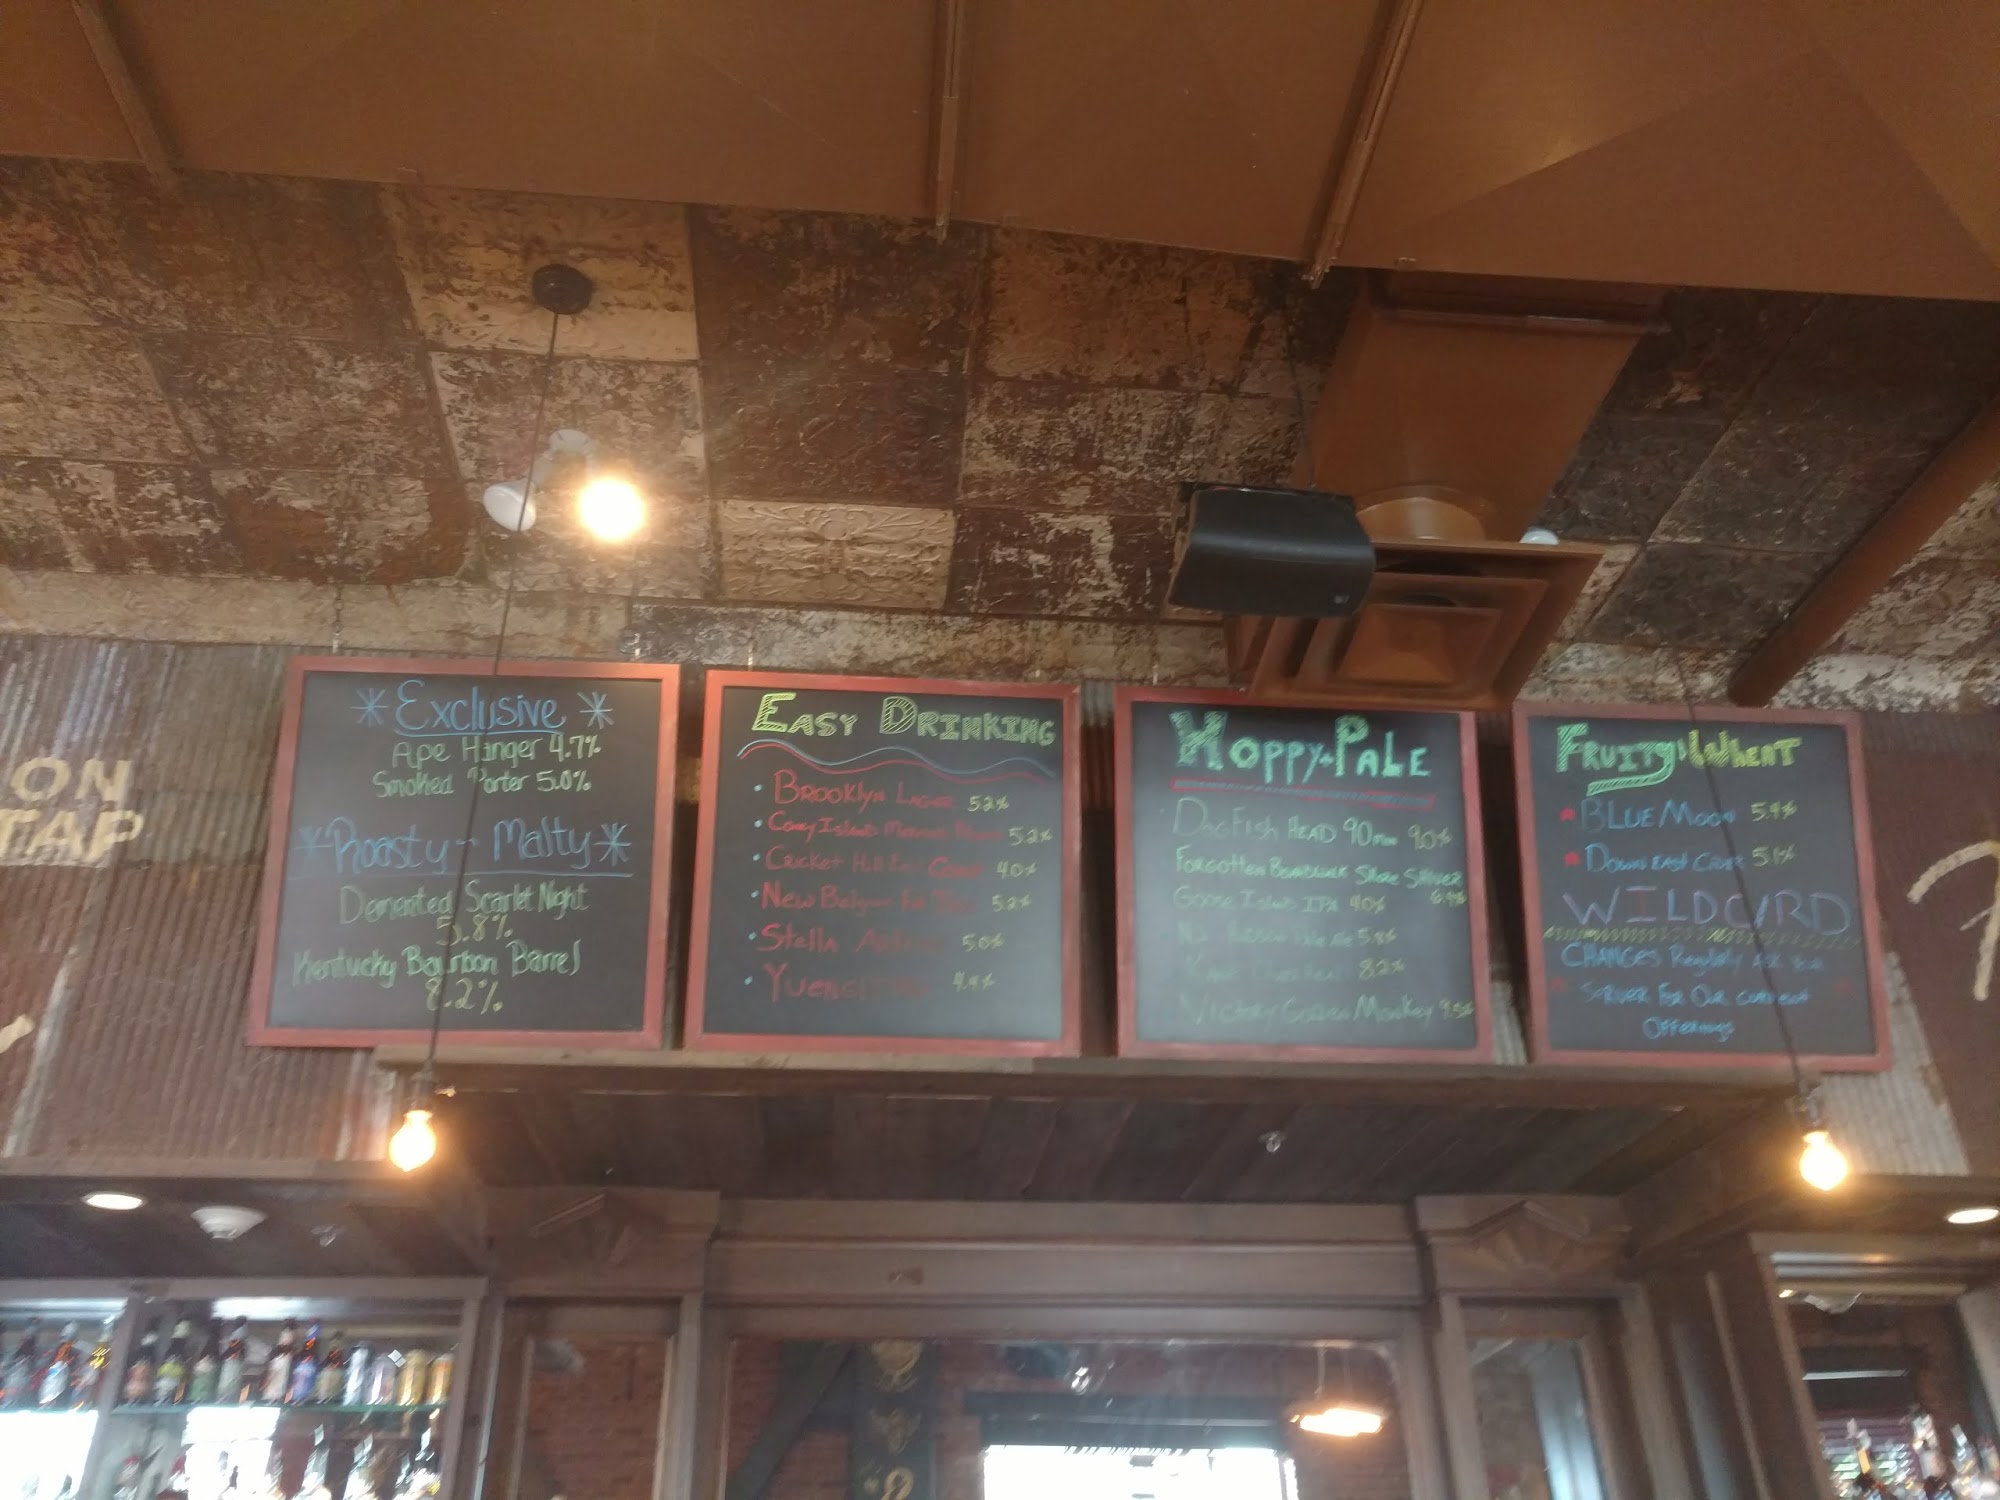 ON
TAP
Exclusive
Ape Hanger 4.7%
Smoked Porter 5.0%
Roasty - Malty
Demented Scarlet Night
5.8%
Kentucky Bourbon Barrel
8.2%
EASY DRINKING
BROOKLYN LAGER 5.2%
Coney Island 5.2%
Cricket Hill East Coast 4.0%
New Belgium Fat Tire 5.2%
Stella Artois 5.0%
YUENGLING 4.4%
HOPPY + PALE
DOGFISH HEAD 90 min 9.0%
FORGOTTEN BOARDWALK SHORE SHIVER
GOOSE ISLAND IPA
NJ Pale Ale 5.8%
8.2%
VICTORY GOLDEN MONKEY 9.5%
FRUITY + WHEAT
BLUE MOON 5.4%
DOWN EAST CIDER 5.1%
WILDCARD
CHANGES Regularly ASK YOUR
SERVER FOR OUR CURRENT
OFFERINGS